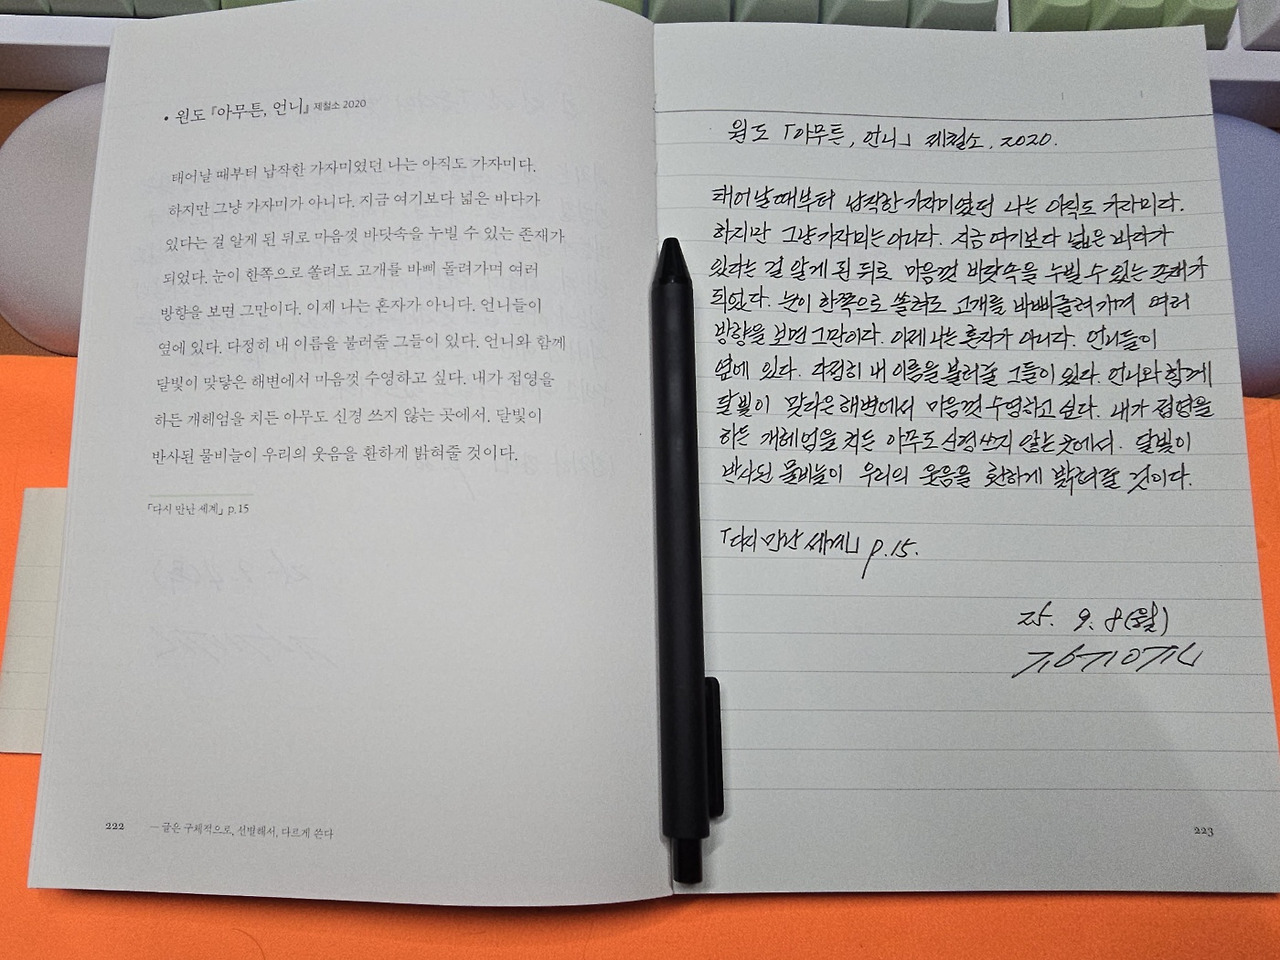 • 원도 『아무튼, 언니』 제철소 2020
태어날 때부터 납작한 가자미였던 나는 아직도 가자미다.
하지만 그냥 가자미가 아니다. 지금 여기보다 넓은 바다가
있다는 걸 알게 된 뒤로 마음껏 바닷속을 누빌 수 있는 존재가
되었다. 눈이 한쪽으로 쏠려도 고개를 바삐 돌려가며 여러
방향을 보면 그만이다. 이제 나는 혼자가 아니다. 언니들이
옆에 있다. 다정히 내 이름을 불러줄 그들이 있다. 언니와 함께
달빛이 맞닿은 해변에서 마음껏 수영하고 싶다. 내가 접영을
하든 개헤엄을 치든 아무도 신경 쓰지 않는 곳에서. 달빛이
반사된 물비늘이 우리의 웃음을 환하게 밝혀줄 것이다.
「다시 만난 세계」 p.15
222 — 글은 구체적으로, 선별해서, 다르게 쓴다
원도 「아무튼, 언니」 제철소, 2020.
태어날때부터 납작한 가자미였던 나는 아직도 가자미다.
하지만 그냥 가자미는 아니다. 지금 여기보다 넓은 바다가
있다는 걸 알게 된 뒤로 마음껏 바닷속을 누빌 수 있는 존재가
되었다. 눈이 한쪽으로 쏠려도 고개를 바삐 돌려가며 여러
방향을 보면 그만이다. 이제 나는 혼자가 아니다. 언니들이
옆에 있다. 다정히 내 이름을 불러줄 그들이 있다. 언니와 함께
달빛이 맞닿은 해변에서 마음껏 수영하고 싶다. 내가 접영을
하든 개헤엄을 치든 아무도 신경쓰지 않는 곳에서. 달빛이
반사된 물비늘이 우리의 웃음을 환하게 밝혀줄 것이다.
「다시 만난 세계」 p.15.
25. 9. 8(월)
223